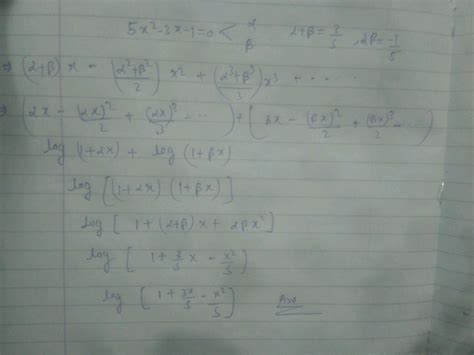 5x²-3x-1=0 < α β α+β = 3/5, αβ = -1/5
⇒ (α+β) x - (α²+β²/2) x² + (α³+β³/3) x³ + ....
⇒ (αx - (αx)²/2 + (αx)³/3 ....) + (βx - (βx)²/2 + (βx)³/2 ....)
log (1+αx) + log (1+βx)
log [(1+αx) (1+βx)]
log [ 1 + (α+β) x + αβx² ]
log [ 1 + 3/5 x - x²/5 ]
log [ 1 + 3x/5 - x²/5 ] Ans